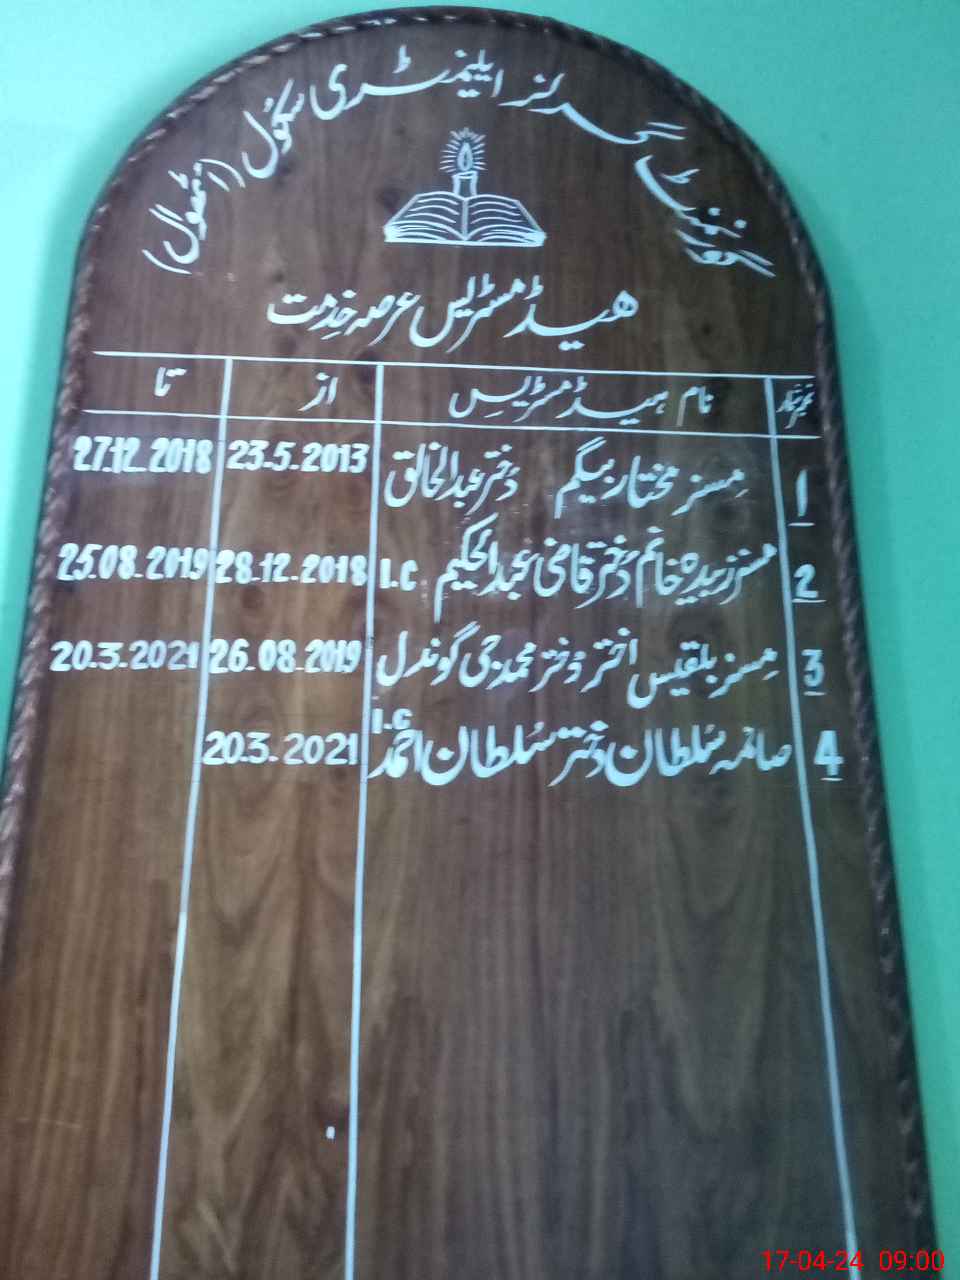 گورنمنٹ گرلز ایلیمنٹری سکول (اٹھوال)
ھیڈ مسٹریس عرصہ خدمت
نمبر شمار نام ہیڈ مسٹریس از تا
1 مسز مختار بیگم دختر عبدالخالق 23.5.2013 27.12.2018
2 مسز زبیدہ خانم دختر قاضی عبدالحکیم I.C 28.12.2018 25.08.2019
3 مسز بلقیس اختر دختر محمد جی گوندل 26.08.2019 20.3.2021
4 صائمہ سلطان دختر سلطان احمد I.C 20.3.2021
17-04-24 09:00